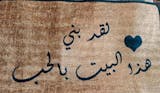 لقد بني
هذا البيت بالحب